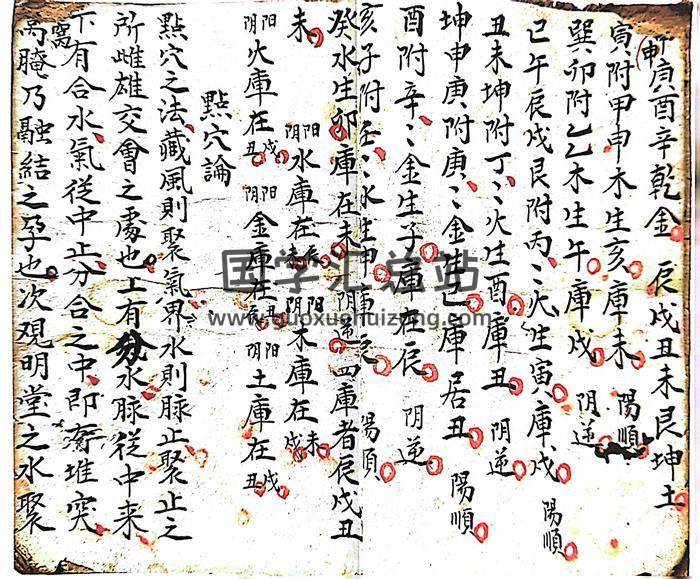 申庚酉辛乾金 辰戌丑未艮坤土
寅附甲申木生亥庫未 陽順
巽卯附乙乙木生午庫戌 阴逆
巳午辰戌艮附丙〻火生寅庫戌 陽順
丑未坤附丁〻火生酉庫丑 阴逆
坤申庚附庚〻金生巳庫居丑 陽順
酉附辛〻金生子庫在辰 阴逆
亥子附壬〻水生申庫辰 陽順
癸水生卯庫在未 阴逆 四庫者辰戌丑
未 阴阳水庫在未辰 阴阳木庫在戌未
阴阳火庫在丑戌 阴阳金庫在辰丑 阴阳土庫在丑戌
點穴論
點穴之法藏風則聚氣界水則脉止聚止之
所雌雄交會之處也上有分水脉從中来
下有合水氣從中止分合之中即有堆突
窩腌乃融結之孕也次观明堂之水聚
国学汇总站
www.guoxuehuizong.com